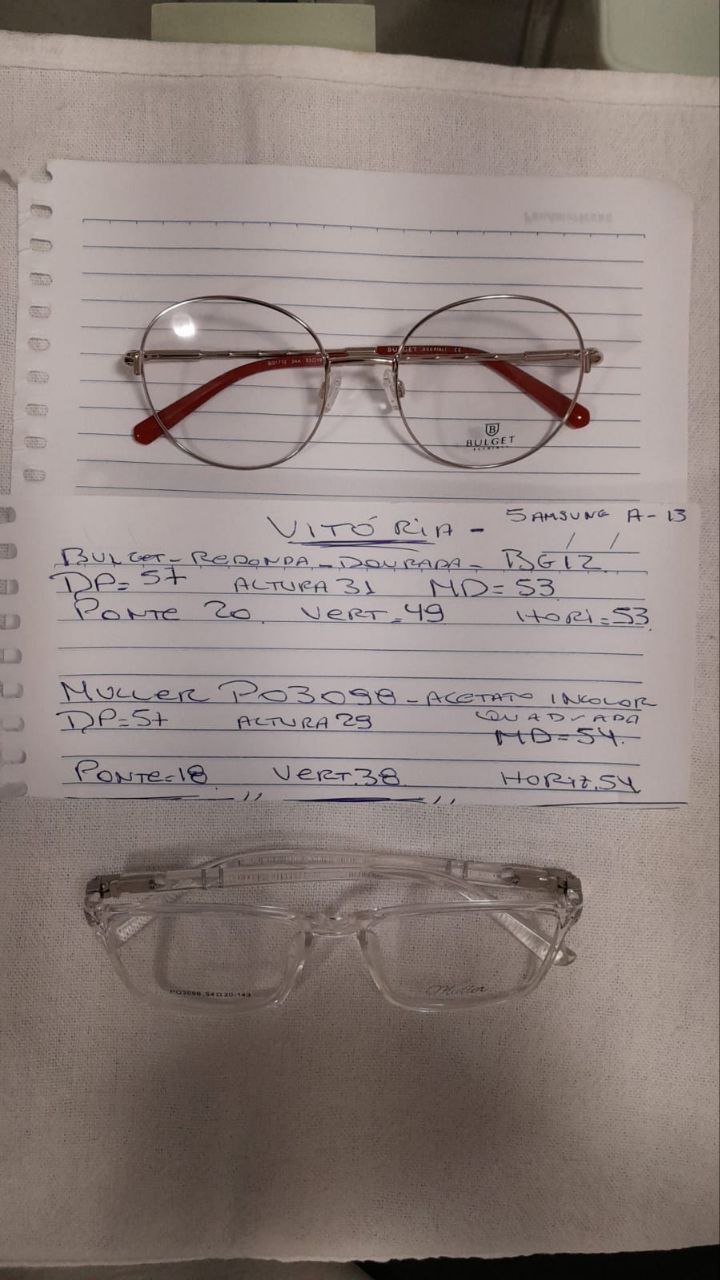 BULGET
BULGET
VITÓRIA - SAMSUNG A-13
BULGET - REDONDA - DOURADA - BG12
DP= 57 ALTURA 31 MD= 53
PONTE 20 VERT. 49 HORI= 53
MULLER PO3098 - ACETATO INCOLOR
QUADRADA
DP=57 ALTURA 29
MD=54.
PONTE=18 VERT. 38 HORIZ. 54
PO3098 54□20-143
Muller